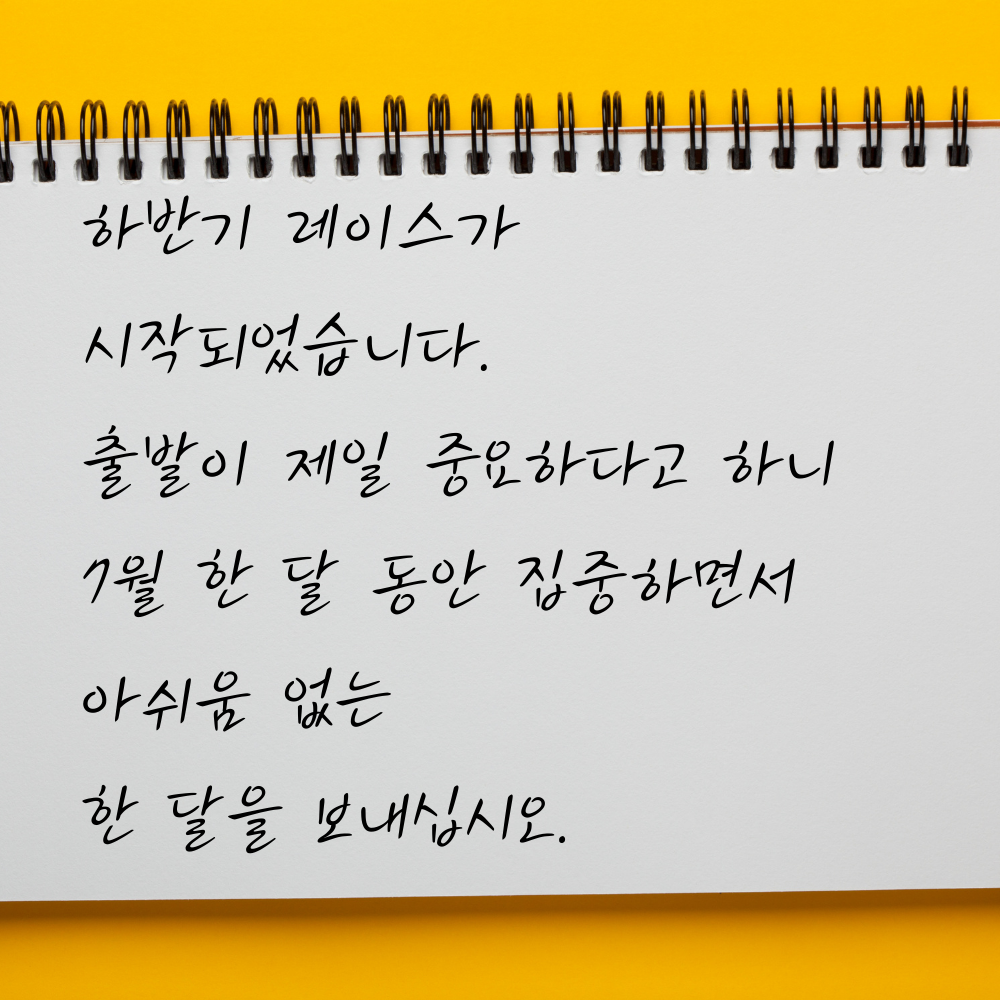 하반기 레이스가
시작되었습니다.
출발이 제일 중요하다고 하니
7월 한 달 동안 집중하면서
아쉬움 없는
한 달을 보내십시오.